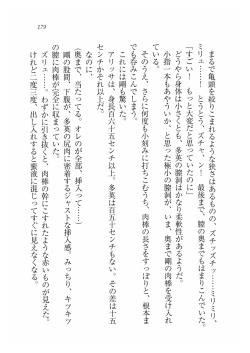 179
まるで亀頭を絞り込まれるようなものを、ズチッズチッ……ミリミリ、
ミリュ……！　とうとう、ズチャ、ン！　最後まで、膣の奥までもはまりこんでいた。
「すごい！　もっと大変だと思っていたのに」
どうやら身体は小さくとも、多英の膣洞はかなり柔軟性があるようだ。
小指一本もあやういか、と思った極小の膣洞が、いま、奥まで剛の肉棒を受け入れ
そのうえ、さらに何度も小刻みに打ちこむうち、肉棒の長さをすっぽりと、根本ま
でも呑みこんでしまう。
これには剛も驚いた。
アリッサは、身長百六十五センチ以上。多英は百五十センチもない。その差は十五
センチかそれ以上だ。
なのに、
（奥まで、当たってる。オレのが全部、挿入って……）
剛の股間、下腹が、多英の尻肉に密着するジャストな挿入感。みっちり、キツキツ
の膣に肉棒が完全に収まっていた。
ズリュ……、わずかに引き抜くと、肉棒の幹にこすれたような赤いものが見えた。
けれど二度三度、出し入れすると蜜液に混じってすぐに見えなくなる。